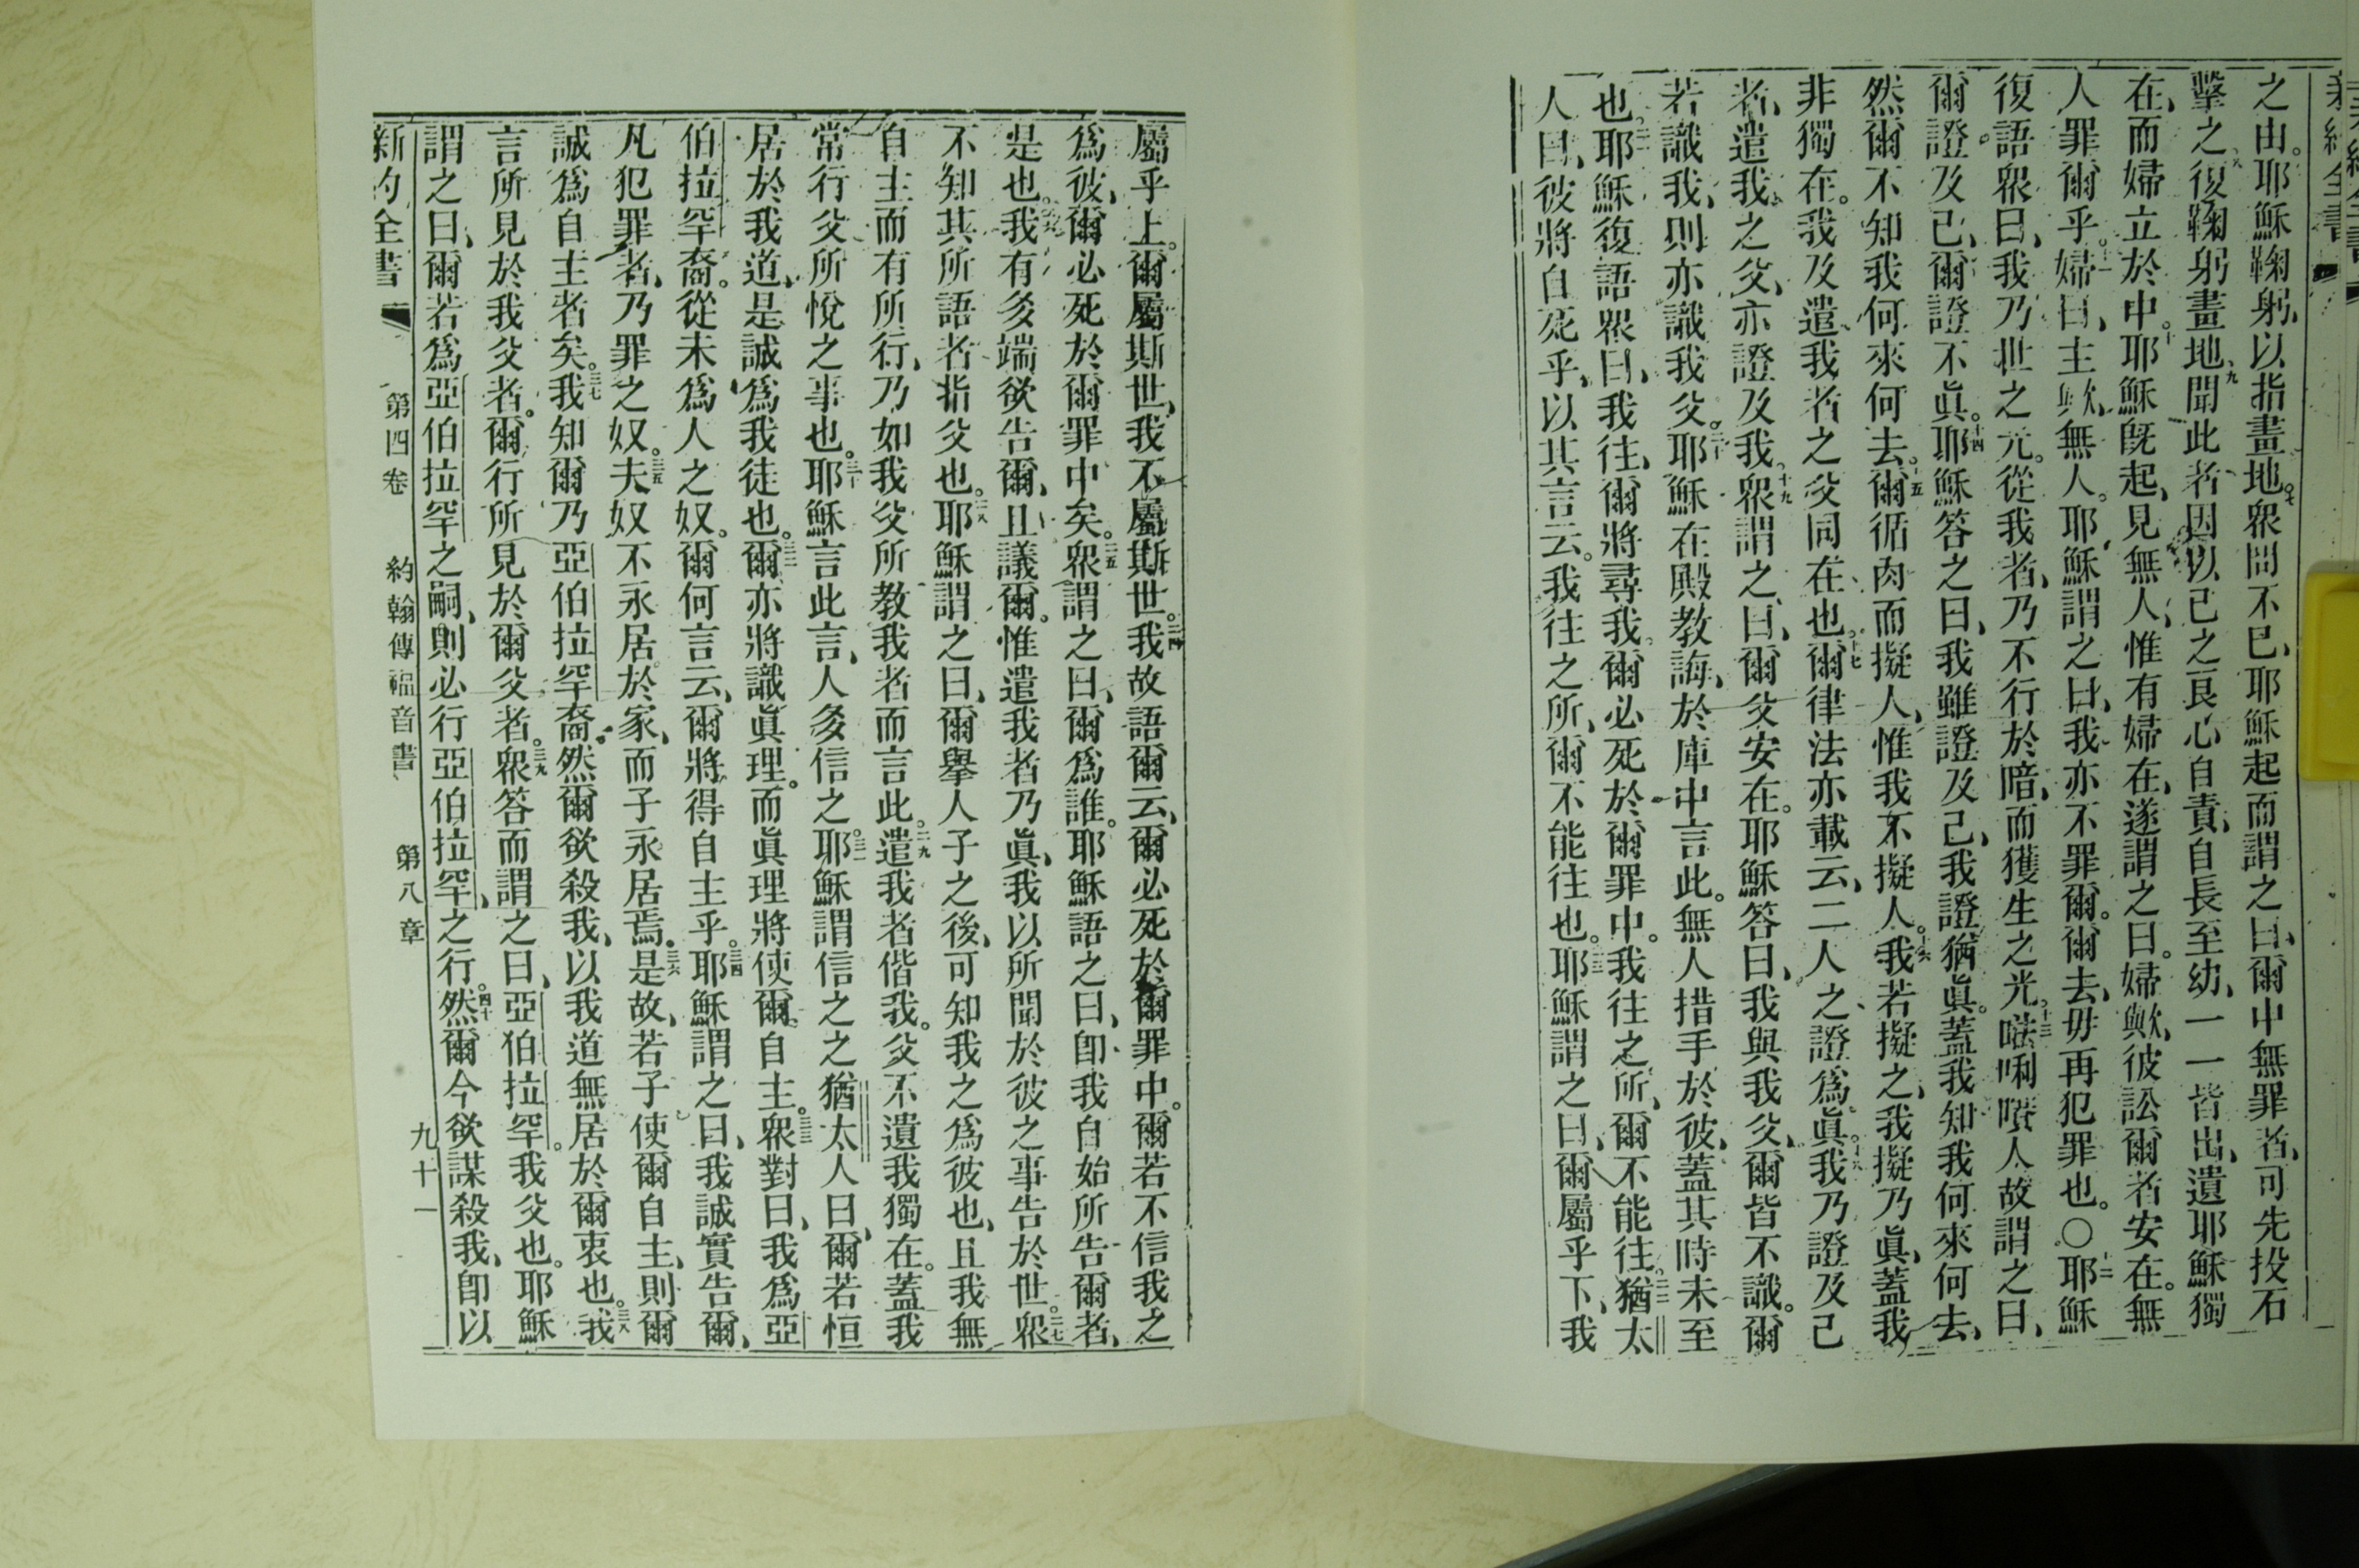 之由。耶穌鞠躬、以指畫地。七衆問不已、耶穌起而謂之曰、爾中無罪者、可先投石
擊之。八復鞠躬畫地。九聞此者、因以己之良心自責、自長至幼、一一皆出、遺耶穌獨
在、而婦立於中。十耶穌旣起、見無人、惟有婦在、遂謂之曰。婦歟、彼訟爾者安在。無
人罪爾乎。十一婦曰、主歟、無人。耶穌謂之曰、我亦不罪爾。爾去、毋再犯罪也。〇十二耶穌
復語衆曰、我乃世之光。從我者、乃不行於暗、而獲生之光。十三㗭唎㘔人故謂之曰、
爾證及己、爾證不眞。十四耶穌答之曰、我雖證及己、我證猶眞。蓋我知我何來何去、
然爾不知我何來何去。十五爾循肉而擬人、惟我不擬人。十六我若擬之、我擬乃眞、蓋我
非獨在。我及遣我者之父同在也。十七爾律法亦載云、二人之證爲眞。十八我乃證及己
者、遣我之父、亦證及我。十九衆謂之曰、爾父安在。耶穌答曰、我與我父、爾皆不識。爾
若識我、則亦識我父。二十耶穌在殿教誨、於庫中言此。無人措手於彼、蓋其時未至
也。二一耶穌復語衆曰、我往、爾將尋我。爾必死於爾罪中。我往之所、爾不能往。二二猶太
人曰、彼將自死乎、以其言云。我往之所、爾不能往也。二三耶穌謂之曰、爾屬乎下、我
屬乎上。爾屬斯世、我不屬斯世。二四我故語爾云、爾必死於爾罪中。爾若不信我之
爲彼、爾必死於爾罪中矣。二五衆謂之曰、爾爲誰。耶穌語之曰、卽我自始所告爾者、
是也。二六我有多端欲告爾、且議爾。惟遣我者乃眞、我以所聞於彼之事告於世。二七衆
不知其所語者指父也。二八耶穌謂之曰、爾舉人子之後、可知我之爲彼也、且我無
自主而有所行、乃如我父所教我者而言此。二九遣我者偕我。父不遺我獨在。蓋我
常行父所悅之事也。三十耶穌言此言、人多信之。三一耶穌謂信之之猶太人曰、爾若恒
居於我道、是誠爲我徒也。三二爾亦將識眞理。而眞理將使爾自主。三三衆對曰、我爲亞
伯拉罕裔。從未爲人之奴。爾何言云、爾將得自主乎。三四耶穌謂之曰、我誠實告爾、
凡犯罪者、乃罪之奴。三五夫奴不永居於家、而子永居焉。三六是故、若子使爾自主、則爾
誠爲自主者矣。三七我知爾乃亞伯拉罕裔。然爾欲殺我、以我道無居於爾衷也。三八我
言所見於我父者。爾行所見於爾父者。三九衆答而謂之曰、亞伯拉罕。我父也。耶穌
謂之曰、爾若爲亞伯拉罕之嗣、則必行亞伯拉罕、之行。四十然爾今欲謀殺我、卽以
新約全書 第四卷 約翰傳福音書 第八章 九十一